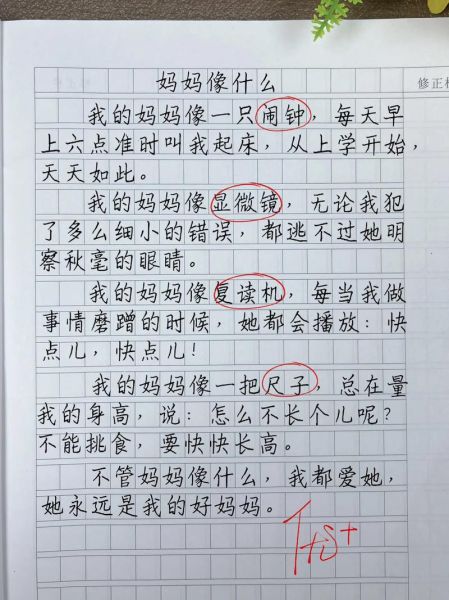 妈妈像什么
修正栏
我的妈妈像一只闹钟，每天早
上六点准时叫我起床，从上学开始，
天天如此。
我的妈妈像显微镜，无论我犯
了多么细小的错误，都逃不过她明
察秋毫的眼睛。
我的妈妈像复读机，每当我做
事情磨蹭的时候，她都会播放：快
点儿，快点儿！
我的妈妈像一把尺子，总在量
我的身高，说：怎么不长个儿呢？
不能挑食，要快快长高。
不管妈妈像什么，我都爱她，
她永远是我的好妈妈。